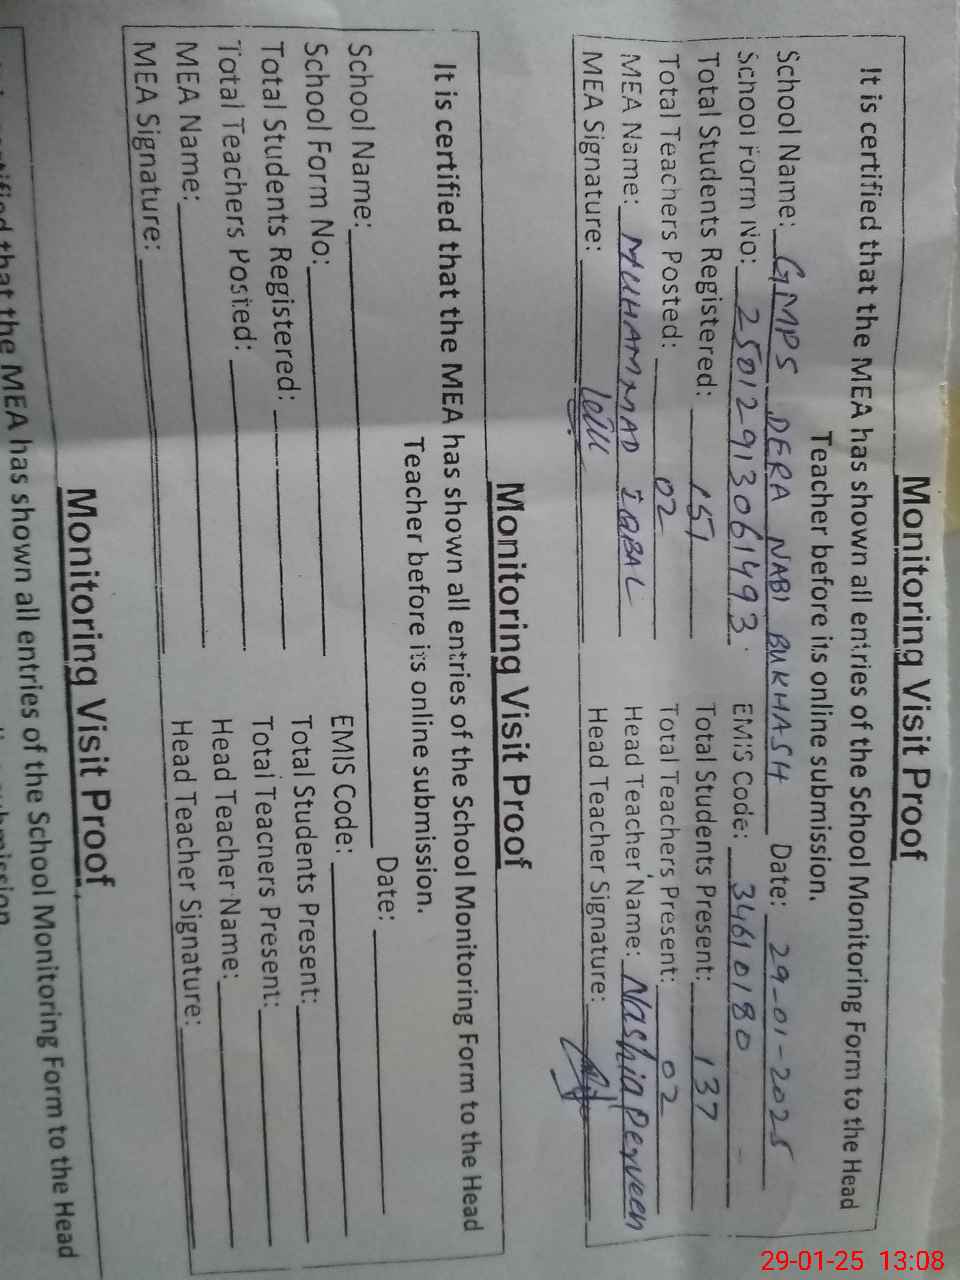 Monitoring Visit Proof
It is certified that the MEA has shown all entries of the School Monitoring Form to the Head
Teacher before its online submission.
School Name: GMPS DERA NABI BUKHASH Date: 29-01-2025
School Form No: 2501291306 1493 EMIS Code: 34610180
Total Students Registered: 151 Total Students Present: 137
Total Teachers Posted: 02 Total Teachers Present: 02
MEA Name: MUHAMMAD IQBAL Head Teacher Name: Nashia Perveen
MEA Signature: Head Teacher Signature:
Monitoring Visit Proof
It is certified that the MEA has shown all entries of the School Monitoring Form to the Head
Teacher before its online submission.
School Name: Date:
School Form No: EMIS Code:
Total Students Registered: Total Students Present:
Total Teachers Posted: Total Teachers Present:
MEA Name: Head Teacher Name:
MEA Signature: Head Teacher Signature:
Monitoring Visit Proof
that the MEA has shown all entries of the School Monitoring Form to the Head
29-01-25 13:08